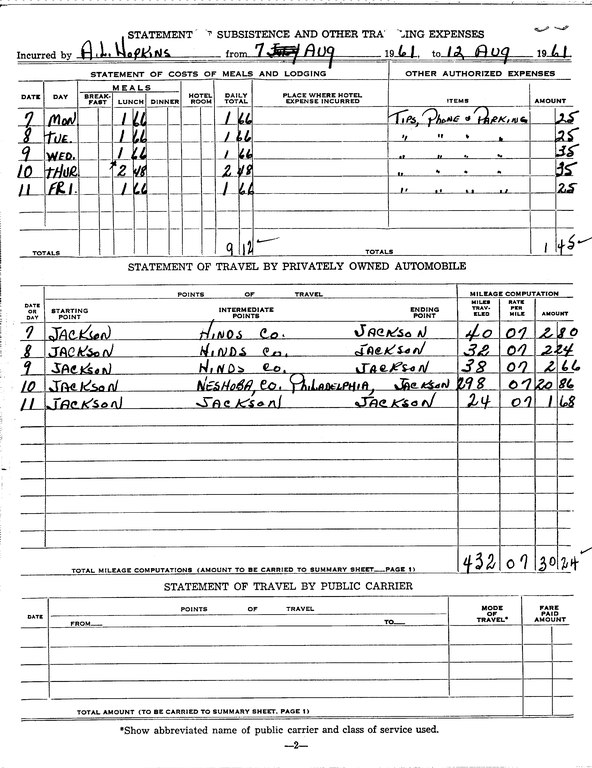 STATEMENT SUBSISTENCE AND OTHER TRA LING EXPENSES
Incurred by A.L. HOPKINS from 7 AUG 1961, to 12 AUG 1961
STATEMENT OF COSTS OF MEALS AND LODGING OTHER AUTHORIZED EXPENSES
DATE DAY MEALS BREAK-FAST LUNCH DINNER HOTEL ROOM DAILY TOTAL PLACE WHERE HOTEL EXPENSE INCURRED ITEMS AMOUNT
7 MON 1 66 1 66 TIPS, PHONE & PARKING 25
8 TUE. 1 66 1 66 " " " " 25
9 WED. 1 66 1 66 " " " " 35
10 THUR *2 48 2 48 " " " " 35
11 FRI. 1 66 1 66 " " " " 25
TOTALS 9 12 TOTALS 1 45
STATEMENT OF TRAVEL BY PRIVATELY OWNED AUTOMOBILE
POINTS OF TRAVEL MILEAGE COMPUTATION
DATE OR DAY STARTING POINT INTERMEDIATE POINTS ENDING POINT MILES TRAV-ELED RATE PER MILE AMOUNT
7 JACKSON HINDS CO. JACKSON 40 07 2 80
8 JACKSON HINDS CO. JACKSON 32 07 2 24
9 JACKSON HINDS CO. JACKSON 38 07 2 66
10 JACKSON NESHOBA, CO. PHILADELPHIA, JACKSON 298 07 20 86
11 JACKSON JACKSON JACKSON 24 07 1 68
TOTAL MILEAGE COMPUTATIONS (AMOUNT TO BE CARRIED TO SUMMARY SHEET__PAGE 1) 432 07 30 24
STATEMENT OF TRAVEL BY PUBLIC CARRIER
DATE POINTS OF TRAVEL MODE OF TRAVEL* FARE PAID AMOUNT
FROM__ TO__
TOTAL AMOUNT (TO BE CARRIED TO SUMMARY SHEET. PAGE 1)
*Show abbreviated name of public carrier and class of service used.
—2—